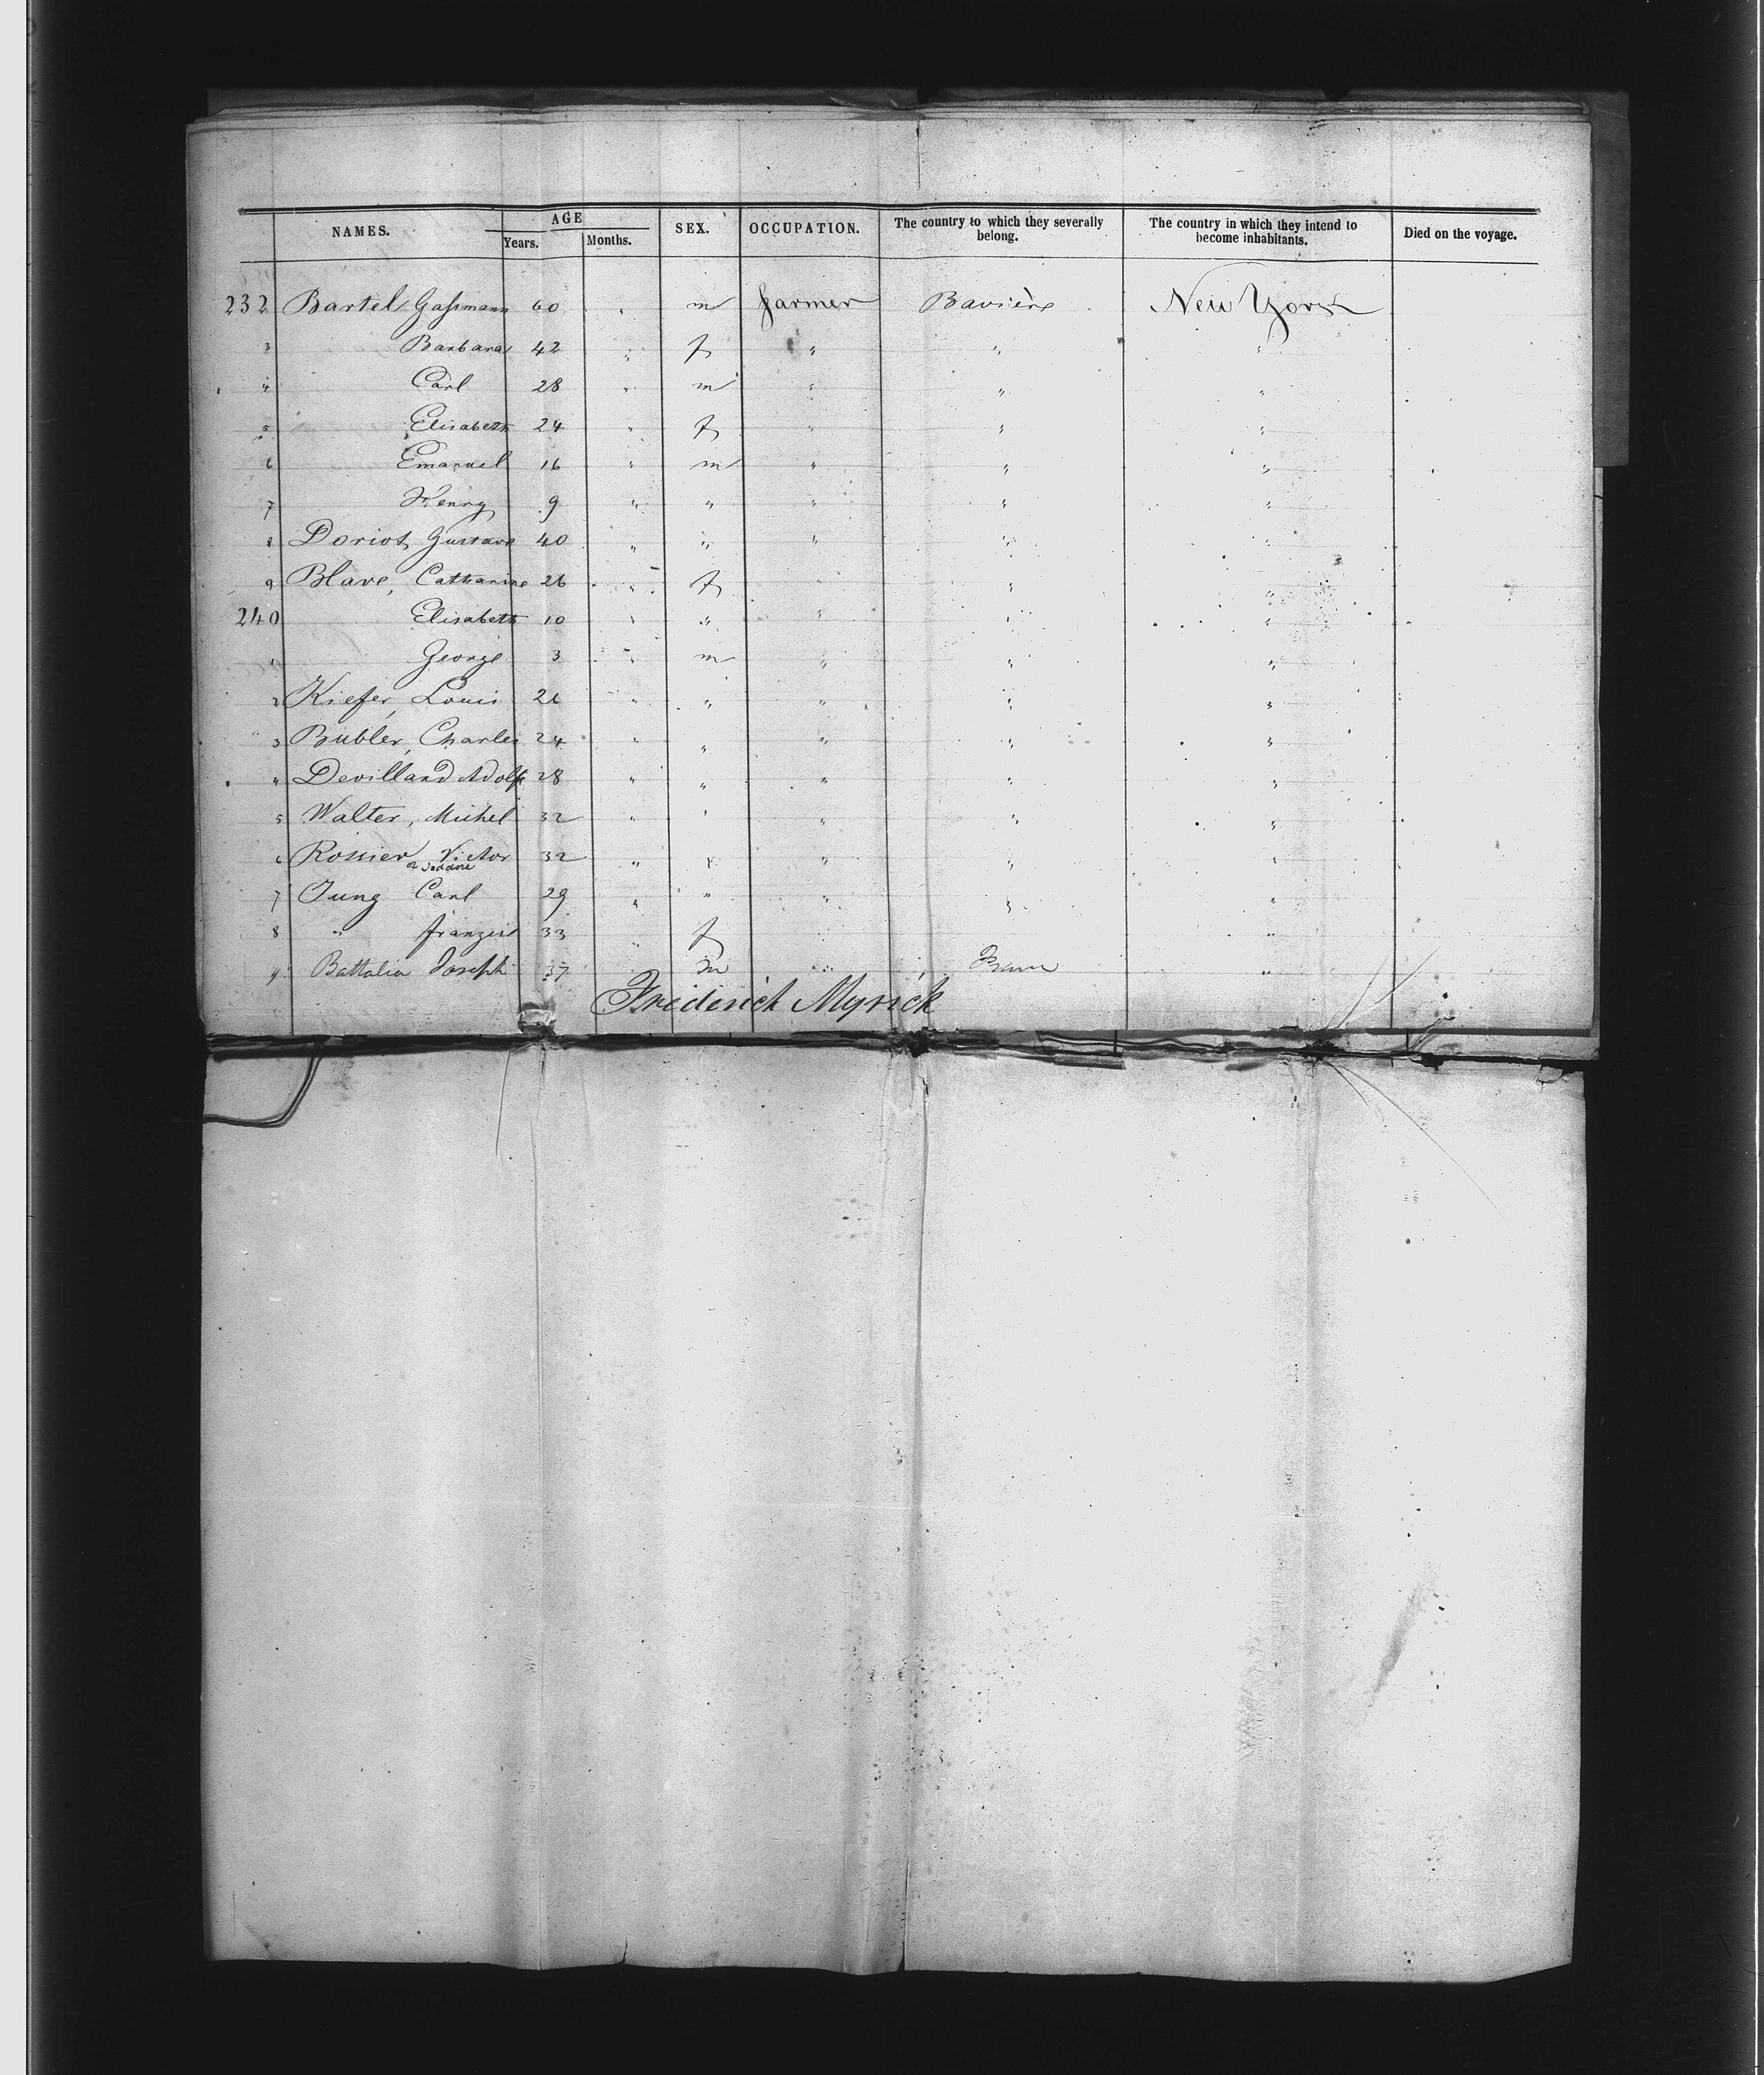 NAMES. AGE SEX. OCCUPATION. The country to which they severally belong. The country in which they intend to become inhabitants. Died on the voyage.
Years. Months.
232 Bartel, Gaſsmann 60 " m farmer Bavière New York
3 Barbara 42 " f " " "
4 Carl 28 " m " " "
5 Elisabeth 24 " f " " "
6 Emanuel 16 " m " " "
7 Henry 9 " " " " "
8 Doriot, Gustave 40 " " " " "
9 Blave, Catharine 26 " f " " "
240 Elisabeth 10 " " " " "
1 George 3 " m " " "
2 Kiefer, Louis 26 " " " " "
3 Bubler, Charles 24 " " " " "
4 Devilland Adolf 28 " " " " "
5 Walter, Michel 32 " " " " "
6 Rossier Victor 32 " " " " "
7 Jung Carl 29 " " " " "
8 " 33 " f " " "
9 Battalia Joseph 37 " m " "
Frederick Myrick